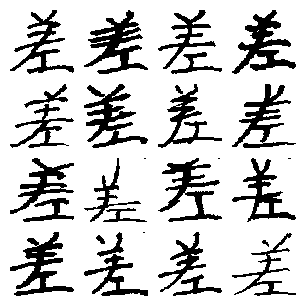 差差差差
差差差差
差差差差
差差差差